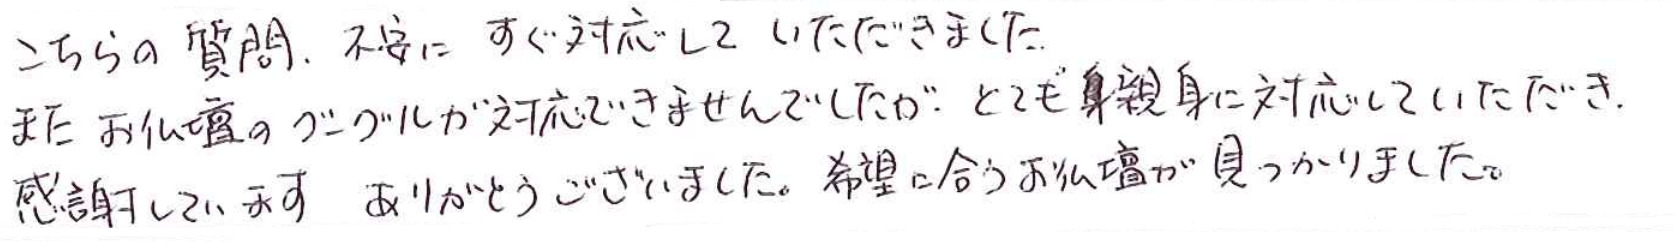 こちらの質問、不安に すぐ対応して いただきました。
また お仏壇のグーグルが対応できませんでしたが、とても身親身に対応していただき、
感謝しています ありがとうございました。希望に合うお仏壇が見つかりました。